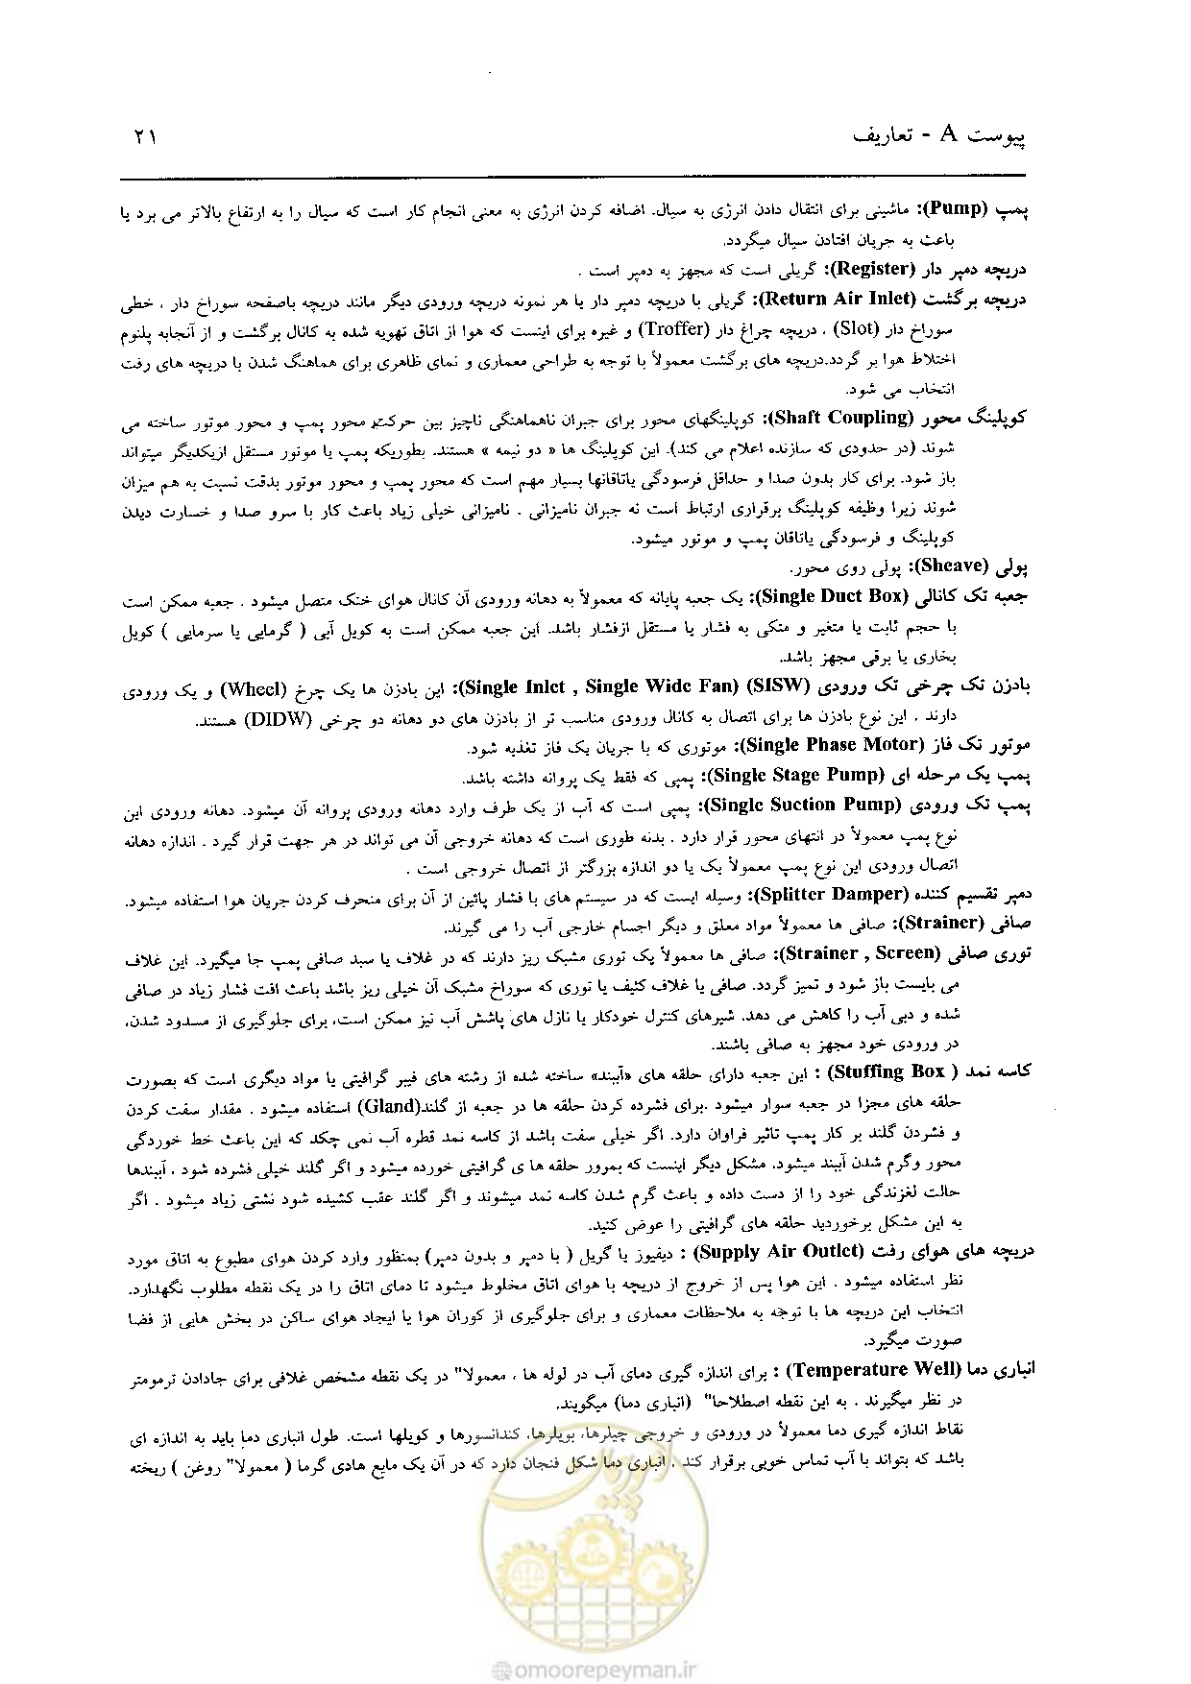 پیوست A - تعاریف
۲۱
پمپ (Pump): ماشینی برای انتقال دادن انرژی به سیال. اضافه کردن انرژی به معنی انجام کار است که سیال را به ارتفاع بالاتر می برد یا
باعث به جریان افتادن سیال میگردد.
دریچه دمپر دار (Register): گریلی است که مجهز به دمپر است .
دریچه برگشت (Return Air Inlet): گریلی با دریچه دمپر دار یا هر نمونه دریچه ورودی دیگر مانند دریچه باصفحه سوراخ دار ، خطی
سوراخ دار (Slot) ، دریچه چراغ دار (Troffer) و غیره برای اینست که هوا از اتاق تهویه شده به کانال برگشت و از آنجابه پلنوم
اختلاط هوا بر گردد.دریچه های برگشت معمولاً با توجه به طراحی معماری و نمای ظاهری برای هماهنگ شدن با دریچه های رفت
انتخاب می شود.
کوپلینگ محور (Shaft Coupling): کوپلینگهای محور برای جبران ناهماهنگی ناچیز بین حرکت محور پمپ و محور موتور ساخته می
شوند (در حدودی که سازنده اعلام می کند). این کوپلینگ ها « دو نیمه » هستند. بطوریکه پمپ یا موتور مستقل ازیکدیگر میتواند
باز شود. برای کار بدون صدا و حداقل فرسودگی یاتاقانها بسیار مهم است که محور پمپ و محور موتور بدقت نسبت به هم میزان
شوند زیرا وظیفه کوپلینگ برقراری ارتباط است نه جبران نامیزانی . نامیزانی خیلی زیاد باعث کار با سرو صدا و خسارت دیدن
کوپلینگ و فرسودگی یاتاقان پمپ و موتور میشود.
پولی (Sheave): پولی روی محور.
جعبه تک کانالی (Single Duct Box): یک جعبه پایانه که معمولاً به دهانه ورودی آن کانال هوای خنک متصل میشود . جعبه ممکن است
با حجم ثابت یا متغیر و متکی به فشار یا مستقل ازفشار باشد. این جعبه ممکن است به کویل آبی ( گرمایی یا سرمایی ) کویل
بخاری یا برقی مجهز باشد.
بادزن تک چرخی تک ورودی (SISW) (Single Inlet , Single Wide Fan): این بادزن ها یک چرخ (Wheel) و یک ورودی
دارند . این نوع بادزن ها برای اتصال به کانال ورودی مناسب تر از بادزن های دو دهانه دو چرخی (DIDW) هستند.
موتور تک فاز (Single Phase Motor): موتوری که با جریان یک فاز تغذیه شود.
پمپ یک مرحله ای (Single Stage Pump): پمپی که فقط یک پروانه داشته باشد.
پمپ تک ورودی (Single Suction Pump): پمپی است که آب از یک طرف وارد دهانه ورودی پروانه آن میشود. دهانه ورودی این
نوع پمپ معمولاً در انتهای محور قرار دارد . بدنه طوری است که دهانه خروجی آن می تواند در هر جهت قرار گیرد . اندازه دهانه
اتصال ورودی این نوع پمپ معمولاً یک یا دو اندازه بزرگتر از اتصال خروجی است .
دمپر تقسیم کننده (Splitter Damper): وسیله ایست که در سیستم های با فشار پائین از آن برای منحرف کردن جریان هوا استفاده میشود.
صافی (Strainer): صافی ها معمولاً مواد معلق و دیگر اجسام خارجی آب را می گیرند.
توری صافی (Strainer , Screen): صافی ها معمولاً یک توری مشبک ریز دارند که در غلاف یا سبد صافی پمپ جا میگیرد. این غلاف
می بایست باز شود و تمیز گردد. صافی یا غلاف کثیف یا توری که سوراخ مشبک آن خیلی ریز باشد باعث افت فشار زیاد در صافی
شده و دبی آب را کاهش می دهد. شیرهای کنترل خودکار یا نازل های پاشش آب نیز ممکن است، برای جلوگیری از مسدود شدن،
در ورودی خود مجهز به صافی باشند.
کاسه نمد ( Stuffing Box) : این جعبه دارای حلقه های «آببند» ساخته شده از رشته های فیبر گرافیتی یا مواد دیگری است که بصورت
حلقه های مجزا در جعبه سوار میشود .برای فشرده کردن حلقه ها در جعبه از گلند(Gland) استفاده میشود . مقدار سفت کردن
و فشردن گلند بر کار پمپ تاثیر فراوان دارد. اگر خیلی سفت باشد از کاسه نمد قطره آب نمی چکد که این باعث خط خوردگی
محور وگرم شدن آببند میشود. مشکل دیگر اینست که بمرور حلقه ها ی گرافیتی خورده میشود و اگر گلند خیلی فشرده شود ، آببندها
حالت لغزندگی خود را از دست داده و باعث گرم شدن کاسه نمد میشوند و اگر گلند عقب کشیده شود نشتی زیاد میشود . اگر
به این مشکل برخوردید حلقه های گرافیتی را عوض کنید.
دریچه های هوای رفت (Supply Air Outlet) : دیفیوز یا گریل ( با دمپر و بدون دمپر) بمنظور وارد کردن هوای مطبوع به اتاق مورد
نظر استفاده میشود . این هوا پس از خروج از دریچه با هوای اتاق مخلوط میشود تا دمای اتاق را در یک نقطه مطلوب نگهدارد.
انتخاب این دریچه ها با توجه به ملاحظات معماری و برای جلوگیری از کوران هوا یا ایجاد هوای ساکن در بخش هایی از فضا
صورت میگیرد.
انباری دما (Temperature Well) : برای اندازه گیری دمای آب در لوله ها ، معمولا" در یک نقطه مشخص غلافی برای جادادن ترمومتر
در نظر میگیرند . به این نقطه اصطلاحا" (انباری دما) میگویند.
نقاط اندازه گیری دما معمولاً در ورودی و خروجی چیلرها، بویلرها، کندانسورها و کویلها است. طول انباری دما باید به اندازه ای
باشد که بتواند با آب تماس خوبی برقرار کند . انباری دما شکل فنجان دارد که در آن یک مایع هادی گرما ( معمولا" روغن ) ریخته
امورپیمان
@omoorepeyman.ir